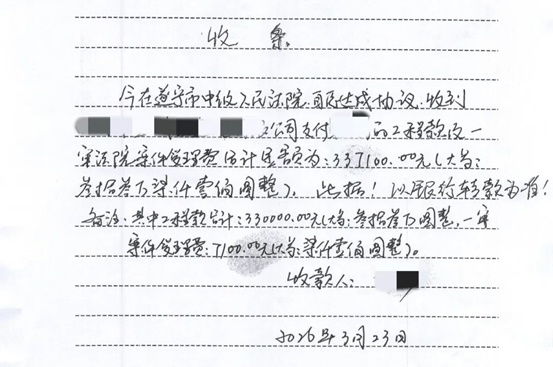 收条
今在遂宁市中级人民法院,自愿达成协议,收到
公司支付 的工程款及一
审法院案件受理费合计金额为:337100.00元(大写:
叁拾叁万柒仟壹佰圆整)。此据!以银行转款为准!
备注:其中工程款合计:330000.00元(大写:叁拾叁万圆整,一审
案件受理费:7100.00元(大写:柒仟壹佰圆整)。
收款人:
2026年3月23日